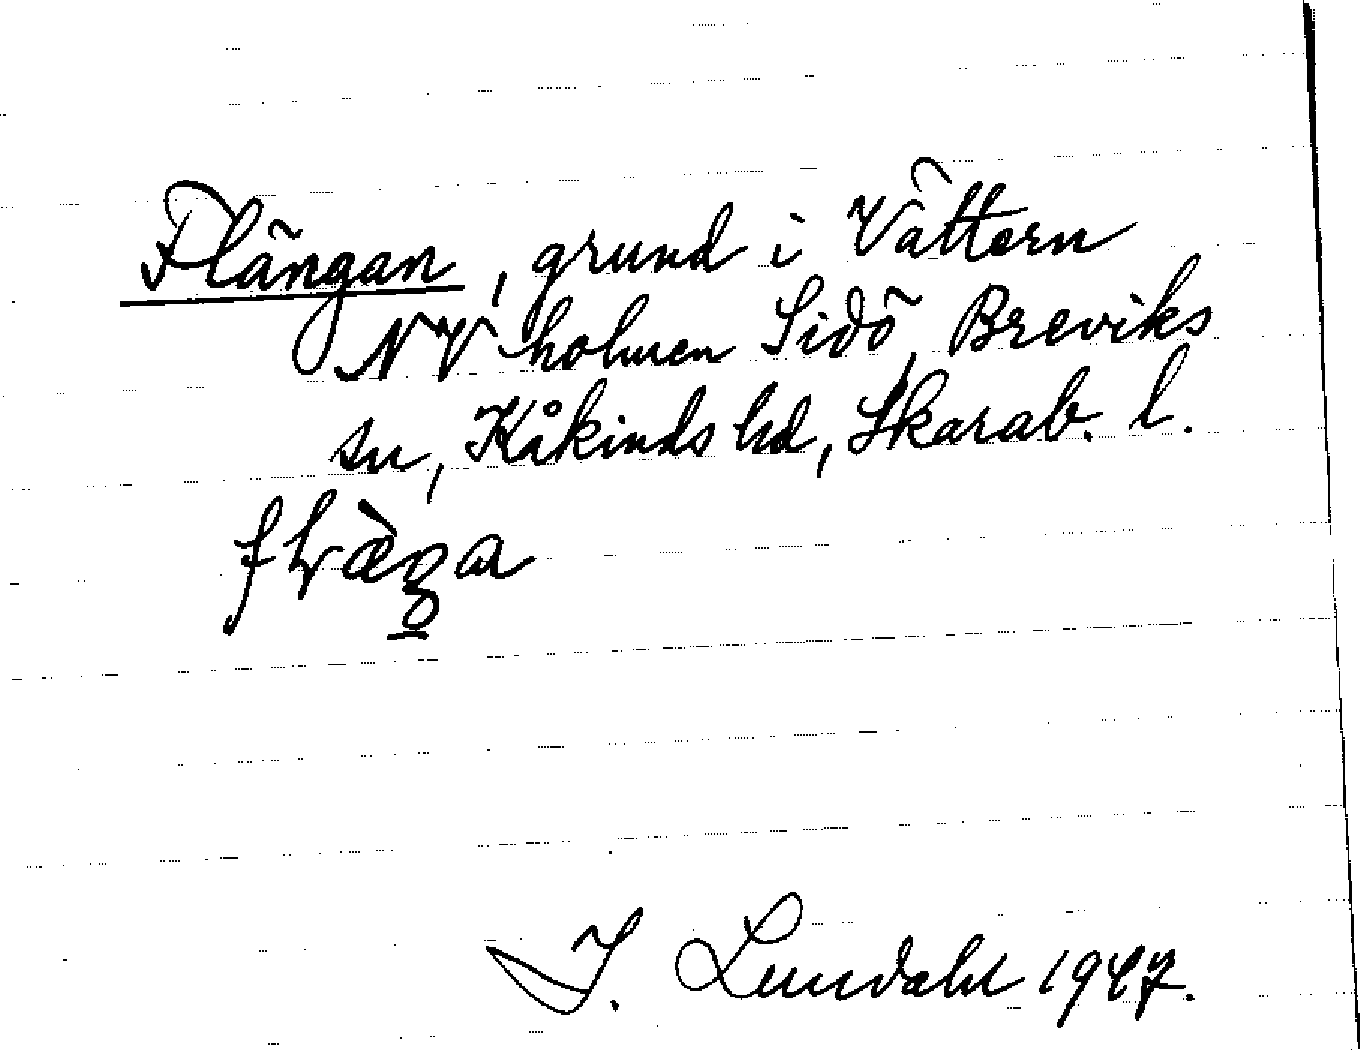 Flängan, grund i Vättern
NV holmen Sidö, Breviks
sn, Kåkinds hd, Skarab. l.
I. Lundahl 1947.